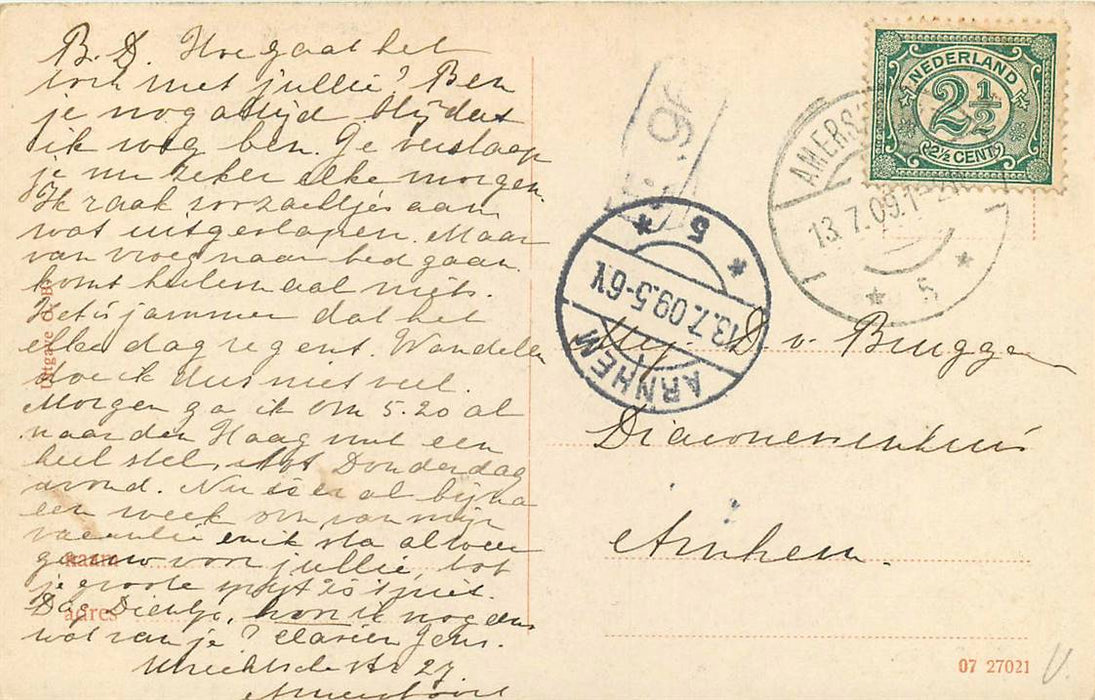 B. D. Hoe gaat het
toch met jullie? Ben
je nog altijd blij dat
ik weg ben. Je verslaap
je nu zeker elke morgen.
Ik raak zoo zachtjes aan
wat uitgeslapen. Maar
van vroeg naar bed gaan
komt heelemaal niets.
Het is jammer dat het
elke dag regent. Wandelen
doe ik dus niet veel.
Morgen ga ik om 5.20 al
naar den Haag met een
heel stel, tot Donderdag
avond. Nu is er al bijna
een week om van mijn
vacantie en ik sta alweer
gauw voor jullie, tot
je groote spijt is 't niet.
Dag Dientje, hoor ik nog eens
wat van je?
Utrechtsche str 27
Amersfoort
Uitgave
naam
adres
NEDERLAND
2½
2½ CENT
AMERSF
13.7.09.1-2
5
5
13.7.09.5-6V
ARNHEM
Mej. D v. Bruggen
Diaconessenhuis
Arnhem.
07 27021
V.